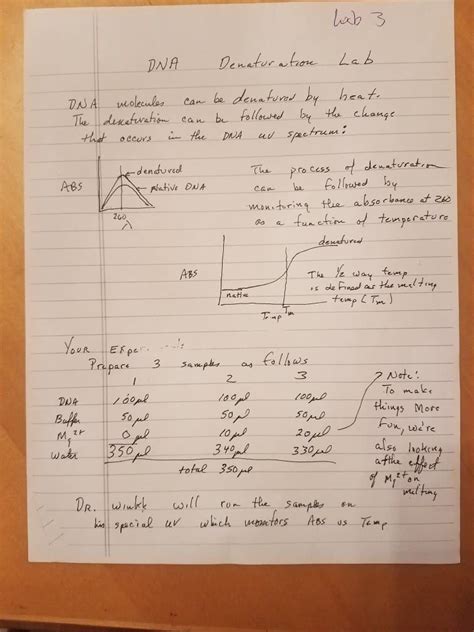 Lab 3
DNA Denaturation Lab
DNA molecules can be denatured by heat.
The denaturation can be followed by the change
that occurs in the DNA uv spectrum:
ABS
denatured
Native DNA
260
λ
The process of denaturation
can be followed by
monitoring the absorbance at 260
as a function of temperature
ABS
denatured
native
Tm
Temp
The 1/2 way temp
is defined as the melting
temp (Tm)
YOUR
Prepare 3 samples as follows
1 2 3
DNA 100µl 100µl 100µl
Buffer 50µl 50µl 50µl
Mg2+ 0µl 10µl 20µl
Water 350µl 340µl 330µl
total 350µl
Note:
To make
things More
Fun, we're
also looking
at the effect
of Mg2+ on
melting
DR. Winkle will run the samples on
his special UV which monitors ABS vs Temp